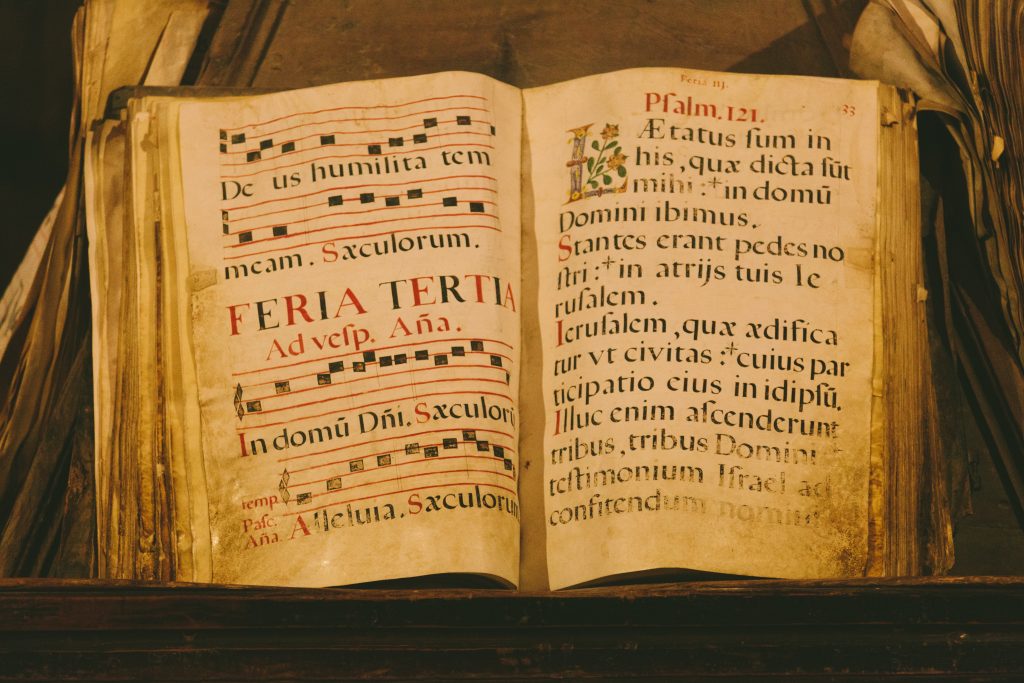 De us humilita tem
meam. Sæculorum.
FERIA TERTIA
Ad veſp. Aña.
In domū Dñi. Sæculorū
temp.
Paſc.
Aña. Alleluia. Sæculorum
Feria iij.
Pſalm. 121. 33
LÆtatus ſum in
his, quæ dicta ſūt
mihi :+ in domū
Domini ibimus.
Stantes erant pedes no
ſtri :+ in atrijs tuis Ie
ruſalem.
Ieruſalem, quæ ædifica
tur vt civitas :+ cuius par
ticipatio eius in idipſū.
Illuc enim aſcenderunt
tribus, tribus Domini +
teſtimonium Iſrael ad
confitendum nomini